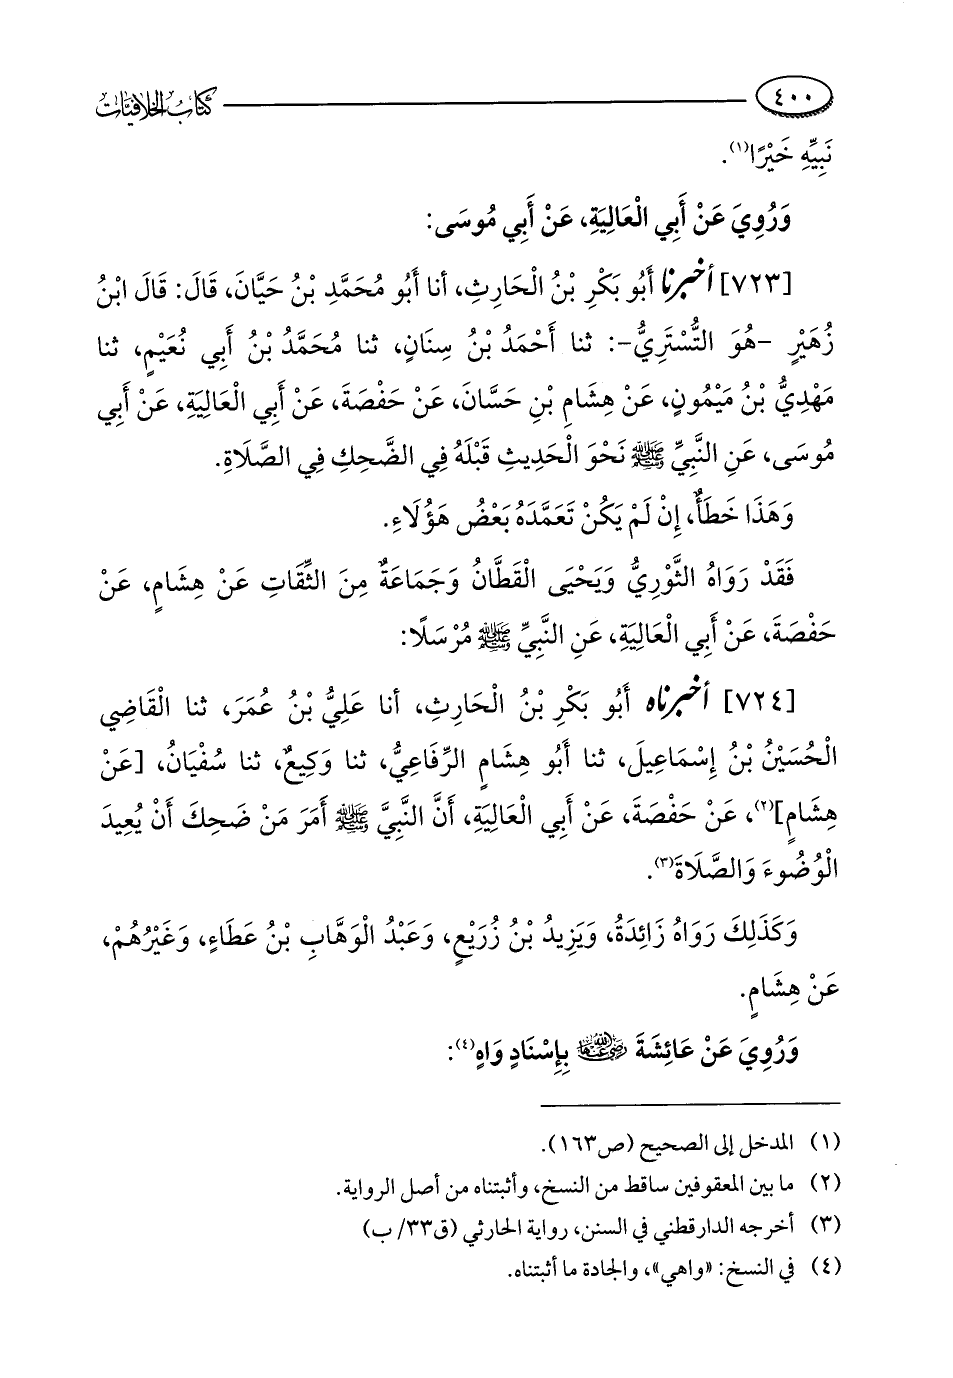 ٤٠٠ كتاب الخلافيات
نَبِيِّهِ خَيْرًا(١).
وَرُوِيَ عَنْ أَبِي الْعَالِيَةِ، عَنْ أَبِي مُوسَى:
[٧٢٣] أخبرنا أَبُو بَكْرِ بْنُ الْحَارِثِ، أنا أَبُو مُحَمَّدِ بْنُ حَيَّانَ، قَالَ: قَالَ ابْنُ
زُهَيْرٍ -هُوَ التُّسْتَرِيُّ-: ثنا أَحْمَدُ بْنُ سِنَانٍ، ثنا مُحَمَّدُ بْنُ أَبِي نُعَيْمٍ، ثنا
مَهْدِيُّ بْنُ مَيْمُونٍ، عَنْ هِشَامِ بْنِ حَسَّانَ، عَنْ حَفْصَةَ، عَنْ أَبِي الْعَالِيَةِ، عَنْ أَبِي
مُوسَى، عَنِ النَّبِيِّ ﷺ نَحْوَ الْحَدِيثِ قَبْلَهُ فِي الضَّحِكِ فِي الصَّلَاةِ.
وَهَذَا خَطَأٌ، إِنْ لَمْ يَكُنْ تَعَمَّدَهُ بَعْضُ هَؤُلَاءِ.
فَقَدْ رَوَاهُ الثَّوْرِيُّ وَيَحْيَى الْقَطَّانُ وَجَمَاعَةٌ مِنَ الثِّقَاتِ عَنْ هِشَامٍ، عَنْ
حَفْصَةَ، عَنْ أَبِي الْعَالِيَةِ، عَنِ النَّبِيِّ ﷺ مُرْسَلًا:
[٧٢٤] أخبرناه أَبُو بَكْرِ بْنُ الْحَارِثِ، أنا عَلِيُّ بْنُ عُمَرَ، ثنا الْقَاضِي
الْحُسَيْنُ بْنُ إِسْمَاعِيلَ، ثنا أَبُو هِشَامٍ الرِّفَاعِيُّ، ثنا وَكِيعٌ، ثنا سُفْيَانُ، [عَنْ
هِشَامٍ](٢)، عَنْ حَفْصَةَ، عَنْ أَبِي الْعَالِيَةِ، أَنَّ النَّبِيَّ ﷺ أَمَرَ مَنْ ضَحِكَ أَنْ يُعِيدَ
الْوُضُوءَ وَالصَّلَاةَ(٣).
وَكَذَلِكَ رَوَاهُ زَائِدَةُ، وَيَزِيدُ بْنُ زُرَيْعٍ، وَعَبْدُ الْوَهَّابِ بْنُ عَطَاءٍ، وَغَيْرُهُمْ،
عَنْ هِشَامٍ.
وَرُوِيَ عَنْ عَائِشَةَ رضي الله عنها بِإِسْنَادٍ وَاهٍ(٤):
(١) المدخل إلى الصحيح (ص١٦٣).
(٢) ما بين المعقوفين ساقط من النسخ، وأثبتناه من أصل الرواية.
(٣) أخرجه الدارقطني في السنن، رواية الحارثي (ق٣٣/ ب)
(٤) في النسخ: «واهي»، والجادة ما أثبتناه.